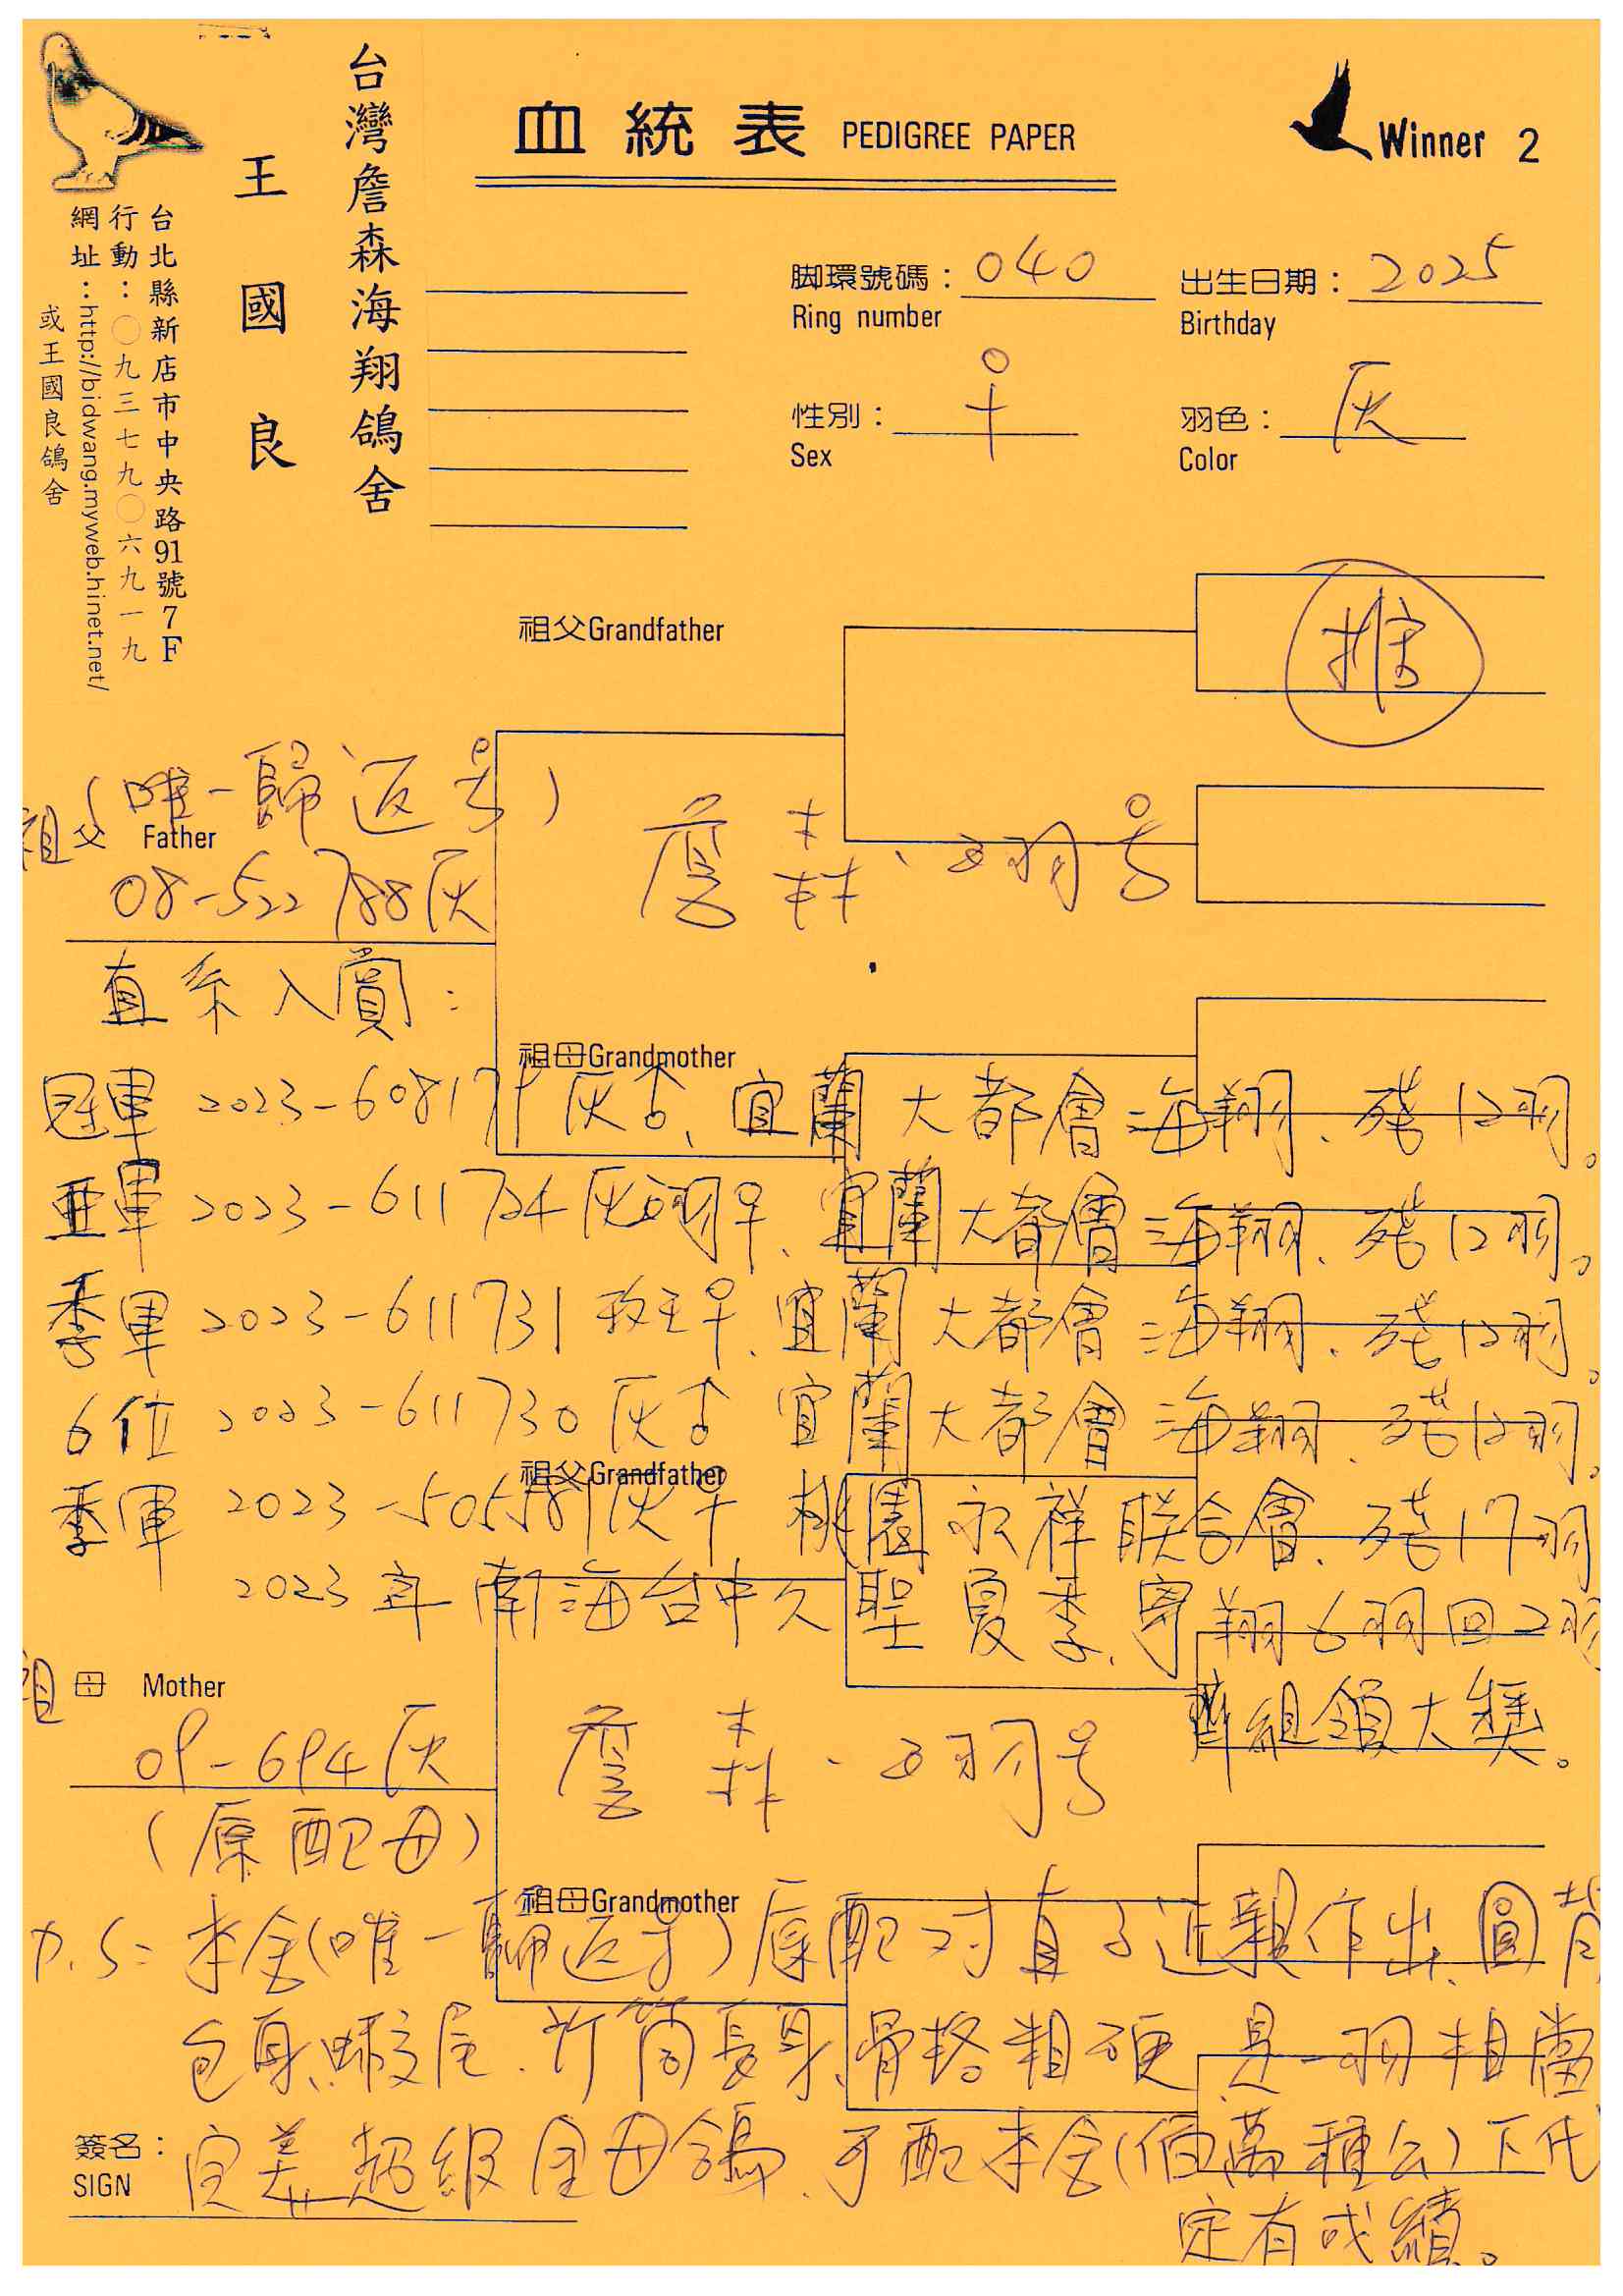 台灣詹森海翔鴿舍
王國良
台北縣新店市中央路91號7F
行動：〇九三七九〇六九一九
網址：http://bidwang.myweb.hinet.net/
或王國良鴿舍
血統表 PEDIGREE PAPER
Winner 2
脚環號碼：040
Ring number
出生日期：2025
Birthday
性別：♀
Sex
羽色：灰
Color
推
祖父Grandfather
(唯一歸返号)
祖父 Father
08-522788灰
詹森、五羽号
直系入賞：
祖母Grandmother
冠軍 2023-608179灰♂、宜蘭大都會海翔、残12羽。
亜軍 2023-611724灰白羽♀、宜蘭大都會海翔、残12羽。
季軍 2023-611731 斑玉♀、宜蘭大都會海翔、残12羽。
6位 2023-611730灰♂ 宜蘭大都會海翔、残12羽。
祖父Grandfather
季軍 2023-505581灰♀ 桃園永祥联合會、残17羽
2023年南海台中久聖夏季、寄翔6羽回2羽
齊組領大獎。
祖母 Mother
09-694灰
詹森、五羽号
(原配母)
祖母Grandmother
P.S: 本舍(唯一歸返号)原配对直子近親作出、圓背
包身、蝦尾、竹筒長身、骨格粗硬、是一羽相當
簽名：
SIGN
完美超級全母鴿、可配本舍(佰萬種公)下代
定有成績。